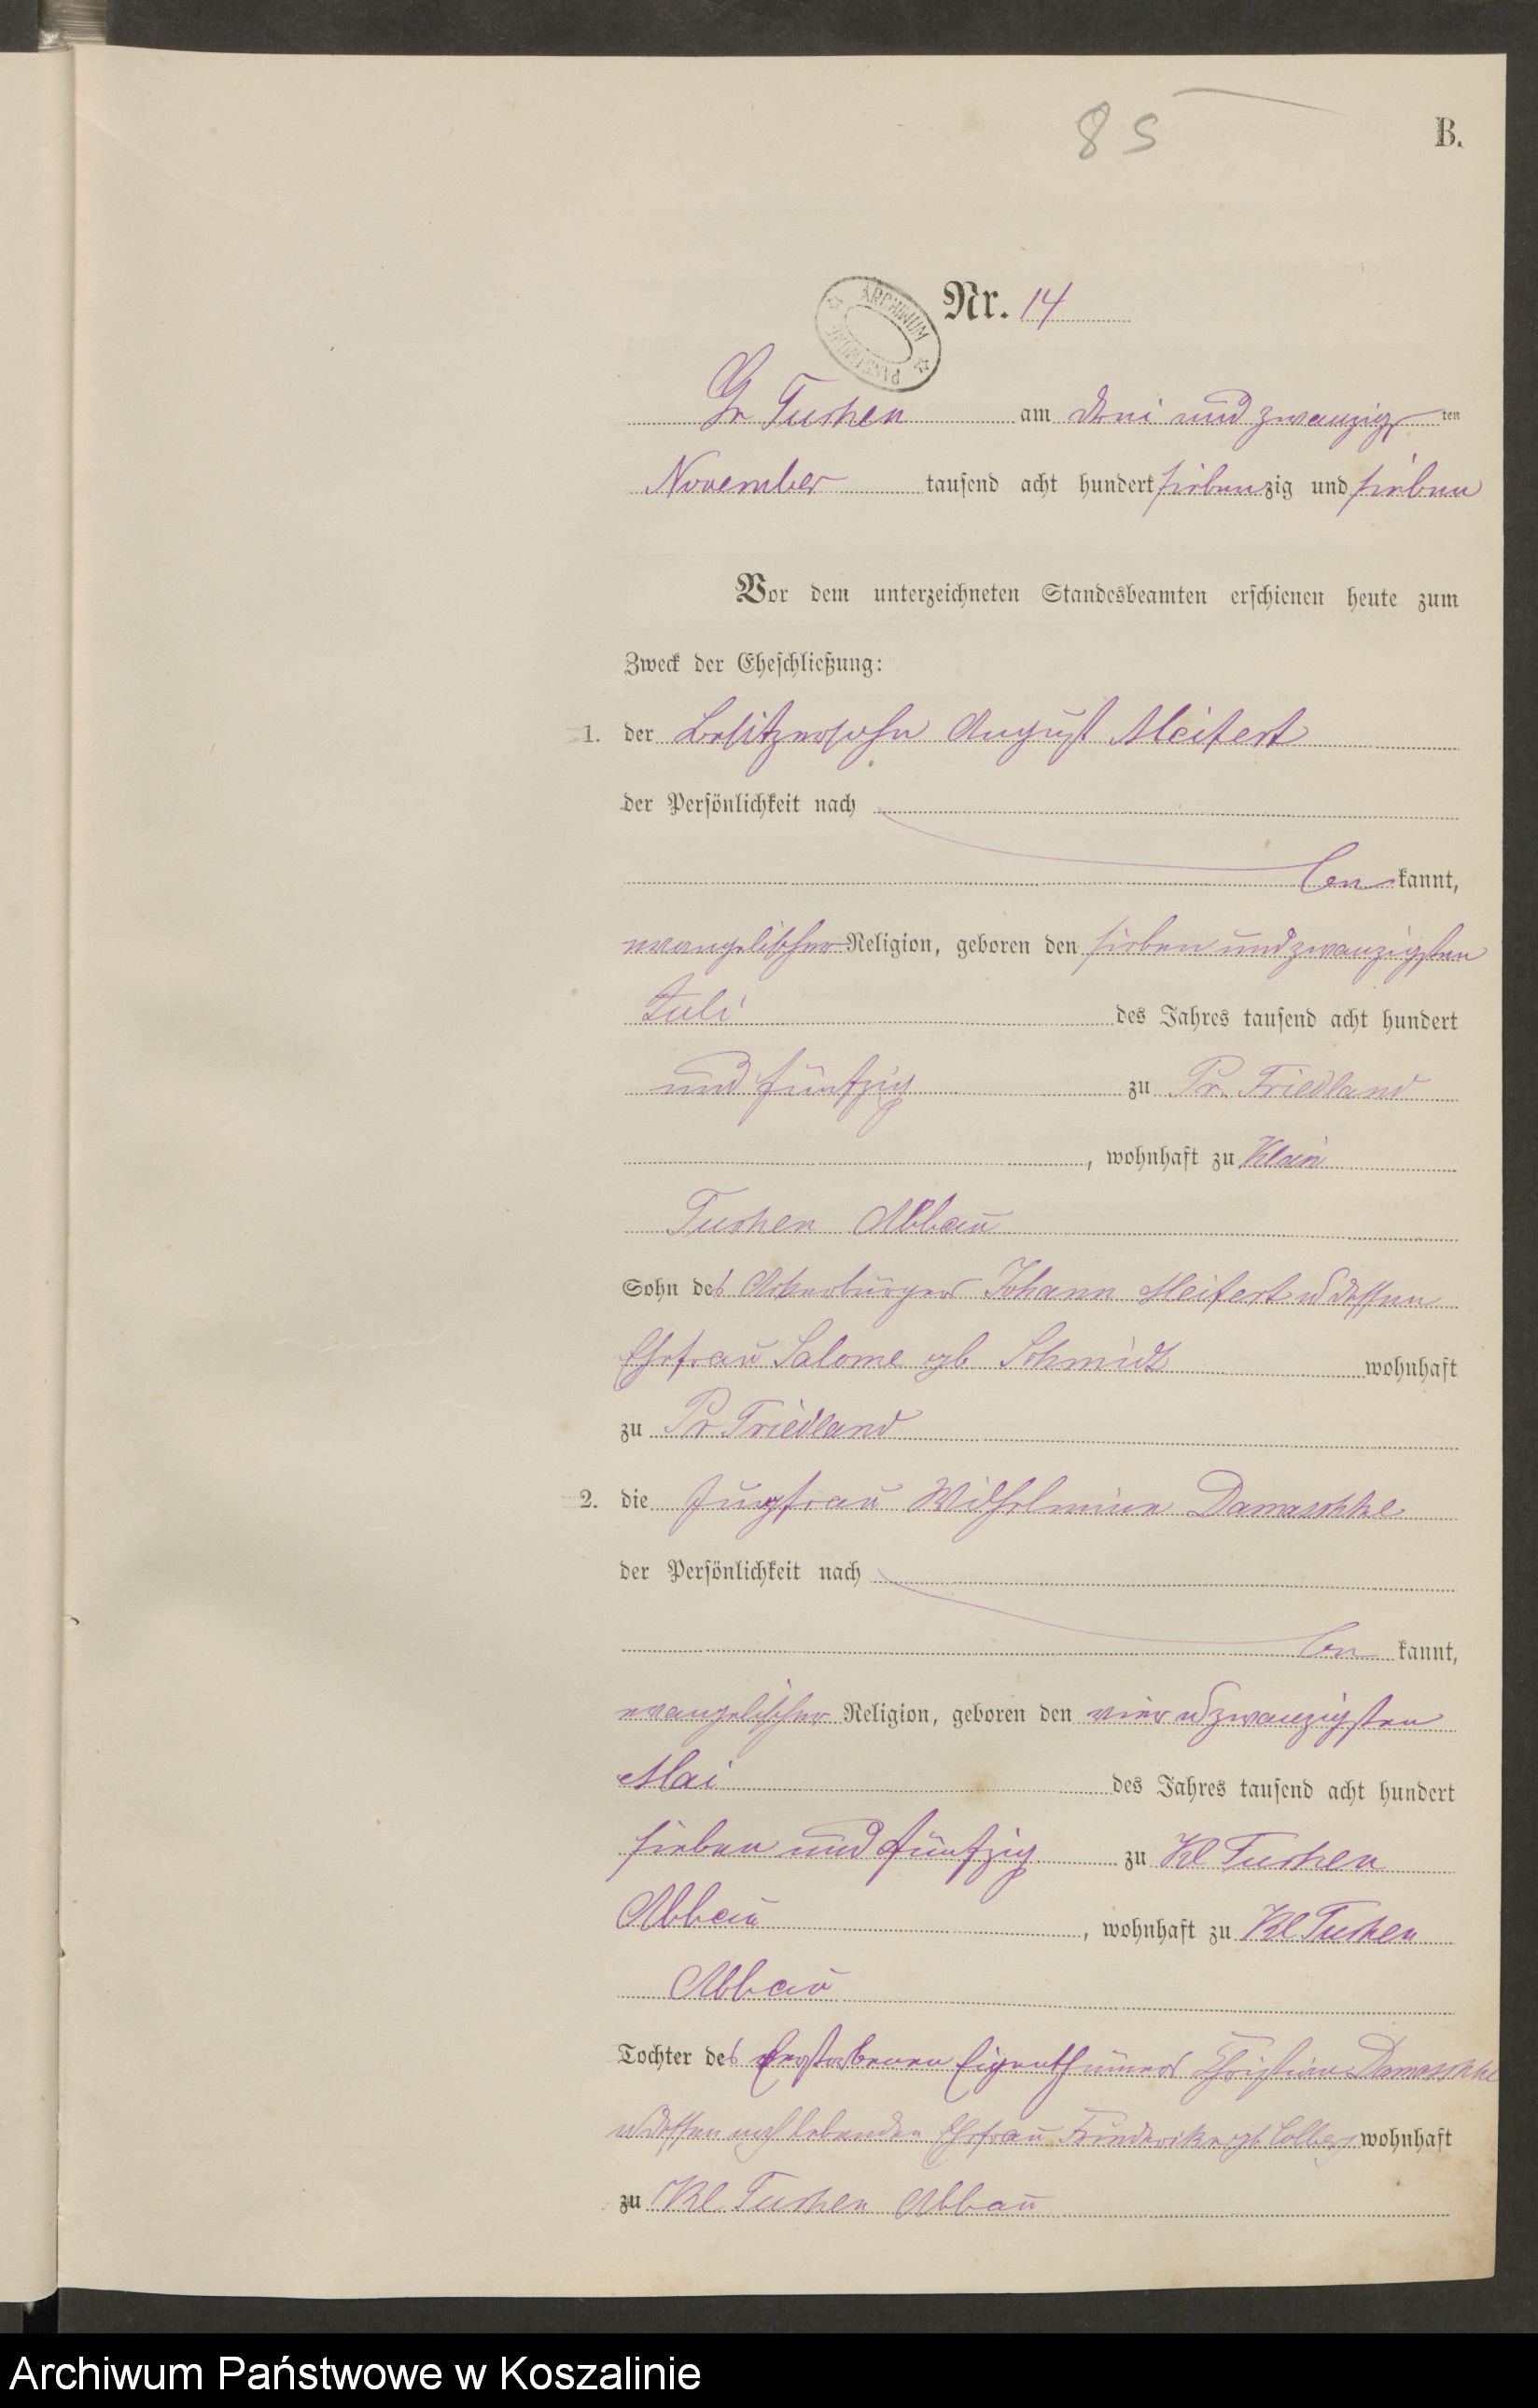 85
B.
ARCHIWUM PAŃSTWOWE
Nr. 14
Gr Tuchen am drei und zwanzig ten
November tausend acht hundert siebenzig und sieben
Vor dem unterzeichneten Standesbeamten erschienen heute zum
Zweck der Eheschließung:
1. der Besitzersohn August Meifert
der Persönlichkeit nach
be kannt,
evangelischer Religion, geboren den sieben und zwanzigsten
Juli des Jahres tausend acht hundert
und fünfzig zu Pr. Friedland
, wohnhaft zu Klein
Tuchen Abbau
Sohn des Ackerbürgers Johann Meifert u dessen
Ehefrau Salome geb Schmidt wohnhaft
zu Pr Friedland
2. die Jungfrau Wilhelmine Damaschke
der Persönlichkeit nach
be kannt,
evangelischer Religion, geboren den vier u zwanzigsten
Mai des Jahres tausend acht hundert
sieben und fünfzig zu Kl Tuchen
Abbau , wohnhaft zu Kl Tuchen
Abbau
Tochter des verstorbenen Eigenthümers Christian Damaschke
u dessen noch lebenden Ehefrau Friederike geb wohnhaft
zu Kl. Tuchen Abbau
Archiwum Państwowe w Koszalinie